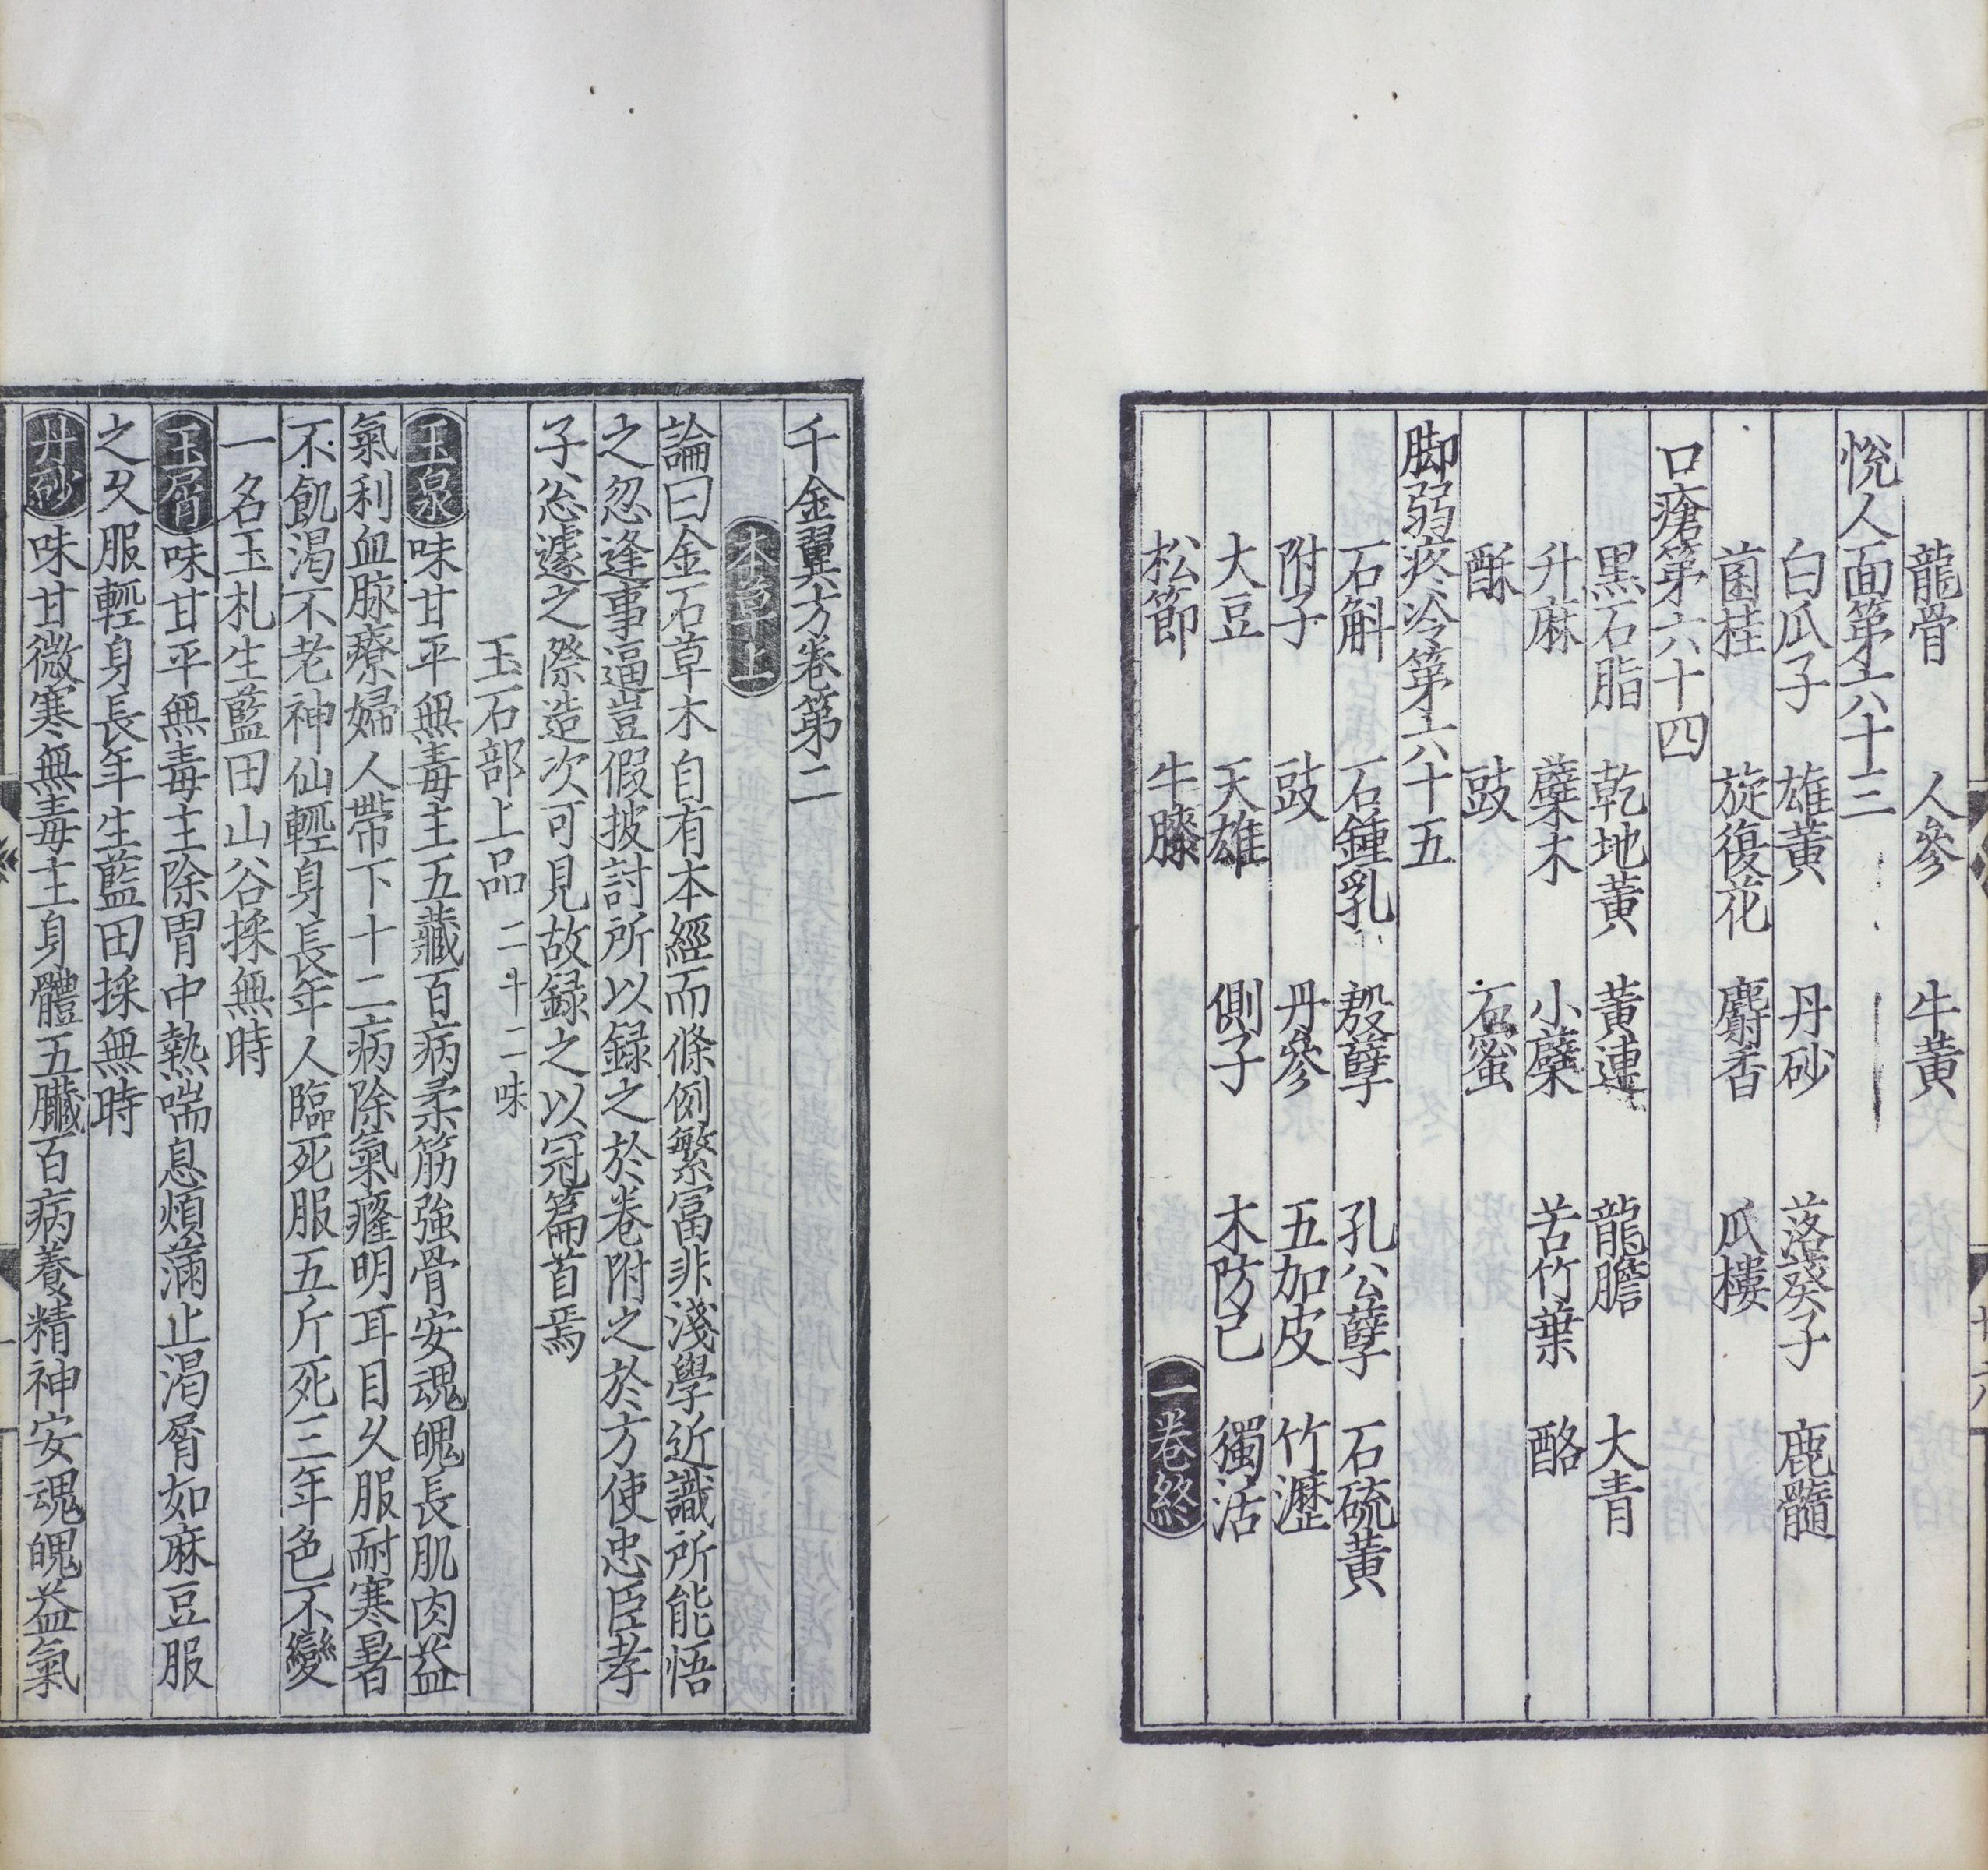 龍骨 人參 牛黃
悅人面第六十三
白瓜子 雄黃 丹砂 落葵子 鹿髓
菌桂 旋復花 麝香 瓜樓
口瘡第六十四
黑石脂 乾地黃 黃連 龍膽 大青
升麻 蘗木 小蘗 苦竹葉 酪
酥 豉 石蜜
脚弱疼冷第六十五
石斛 石鍾乳 殷孽 孔公孽 石硫黃
附子 豉 丹參 五加皮 竹瀝
大豆 天雄 側子 木防己 獨活
松節 牛膝 一卷終
千金翼方卷第二
本草上
論曰金石草木自有本經而條例繁富非淺學近識所能悟
之忽逢事逼豈假披討所以録之於卷附之於方使忠臣孝
子忩遽之際造次可見故録之以冠篇首焉
玉石部上品 二十二味
玉泉味甘平無毒主五藏百病柔筋強骨安魂魄長肌肉益
氣利血脉療婦人帶下十二病除氣癃明耳目久服耐寒暑
不飢渴不老神仙輕身長年人臨死服五斤死三年色不變
一名玉札生藍田山谷採無時
玉屑味甘平無毒主除胃中熱喘息煩滿止渴屑如麻豆服
之久服輕身長年生藍田採無時
丹砂味甘微寒無毒主身體五臟百病養精神安魂魄益氣